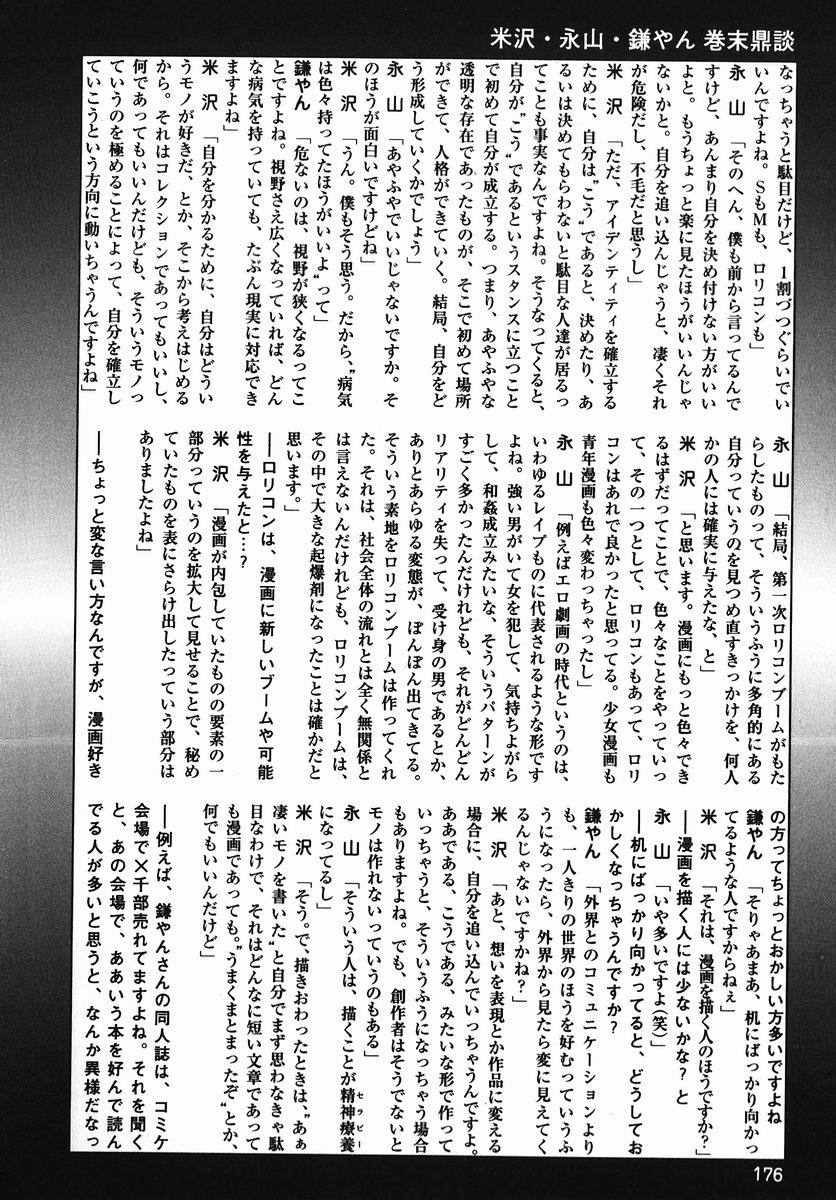 米沢・永山・鎌やん 巻末鼎談
なっちゃうと駄目だけど、1割づつぐらいでい
いんですよね。SもMも、ロリコンも」
永　山　「そのへん、僕も前から言ってるんで
すけど、あんまり自分を決め付けない方がいい
よと。もうちょっと楽に見たほうがいいんじゃ
ないかと。自分を追い込んじゃうと、凄くそれ
が危険だし、不毛だと思うし」
米　沢　「ただ、アイデンティティを確立する
ために、自分は〝こう〟であると、決めたり、あ
るいは決めてもらわないと駄目な人達が居るっ
てことも事実なんですよね。そうなってくると、
自分が〝こう〟であるというスタンスに立つこと
で初めて自分が成立する。つまり、あやふやな
透明な存在であったものが、そこで初めて場所
ができて、人格ができていく。結局、自分をど
う形成していくかでしょう」
永　山　「あやふやでいいじゃないですか。そ
のほうが面白いですけどね」
米　沢　「うん。僕もそう思う。だから、〝病気
は色々持ってたほうがいいよ〟って」
鎌やん　「危ないのは、視野が狭くなるってこ
とですよね。視野さえ広くなっていれば、どん
な病気を持っていても、たぶん現実に対応でき
ますよね」
米　沢　「自分を分かるために、自分はどうい
うモノが好きだ、とか、そこから考えはじめる
から。それはコレクションであってもいいし、
何であってもいいんだけども、そういうモノっ
ていうのを極めることによって、自分を確立し
ていこうという方向に動いちゃうんですよね」
永　山　「結局、第一次ロリコンブームがもた
らしたものって、そういうふうに多角的にある
自分っていうのを見つめ直すきっかけを、何人
かの人には確実に与えたな、と」
米　沢　「と思います。漫画にもっと色々でき
るはずだってことで、色々なことをやっていっ
て、その一つとして、ロリコンもあって、ロリ
コンはあれで良かったと思ってる。少女漫画も
青年漫画も色々変わっちゃったし」
永　山　「例えばエロ劇画の時代というのは、
いわゆるレイプものに代表されるような形です
よね。強い男がいて女を犯して、気持ちよがら
して、和姦成立みたいな、そういうパターンが
すごく多かったんだけれども、それがどんどん
リアリティを失って、受け身の男であるとか、
ありとあらゆる変態が、ぽんぽん出てきてる。
そういう素地をロリコンブームは作ってくれ
た。それは、社会全体の流れとは全く無関係と
は言えないんだけれども、ロリコンブームは、
その中で大きな起爆剤になったことは確かだと
思います。」
──ロリコンは、漫画に新しいブームや可能
性を与えたと…?
米　沢　「漫画が内包していたものの要素の一
部分っていうのを拡大して見せることで、秘め
ていたものを表にさらけ出したっていう部分は
ありましたよね」
──ちょっと変な言い方なんですが、漫画好き
の方ってちょっとおかしい方多いですよね
鎌やん　「そりゃあまあ、机にばっかり向かっ
てるような人ですからねぇ」
米　沢　「それは、漫画を描く人のほうですか?」
──漫画を描く人には少ないかな? と
永　山　「いや多いですよ(笑)」
──机にばっかり向かってると、どうしてお
かしくなっちゃうんですか?
鎌やん　「外界とのコミュニケーションより
も、一人きりの世界のほうを好むっていうふ
うになったら、外界から見たら変に見えてく
るんじゃないですかね?」
米　沢　「あと、想いを表現とか作品に変える
場合に、自分を追い込んでいっちゃうんですよ。
ああである、こうである、みたいな形で作って
いっちゃうと、そういうふうになっちゃう場合
もありますよね。でも、創作者はそうでないと
モノは作れないっていうのもある」
永　山　「そういう人は、描くことが精神療養セラピー
になってるし」
米　沢　「そう。で、描きおわったときは、〝あぁ
凄いモノを書いた〟と自分でまず思わなきゃ駄
目なわけで、それはどんなに短い文章であって
も漫画であっても。〝うまくまとまったぞ〟とか、
何でもいいんだけど」
──例えば、鎌やんさんの同人誌は、コミケ
会場で×千部売れてますよね。それを聞く
と、あの会場で、ああいう本を好んで読ん
でる人が多いと思うと、なんか異様だなっ
176